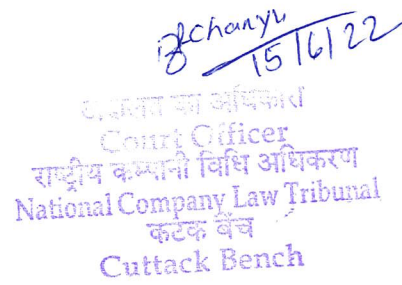 15/6/22
अदालत का अधिकारी
Court Officer
राष्ट्रीय कम्पनी विधि अधिकरण
National Company Law Tribunal
कटक बेंच
Cuttack Bench